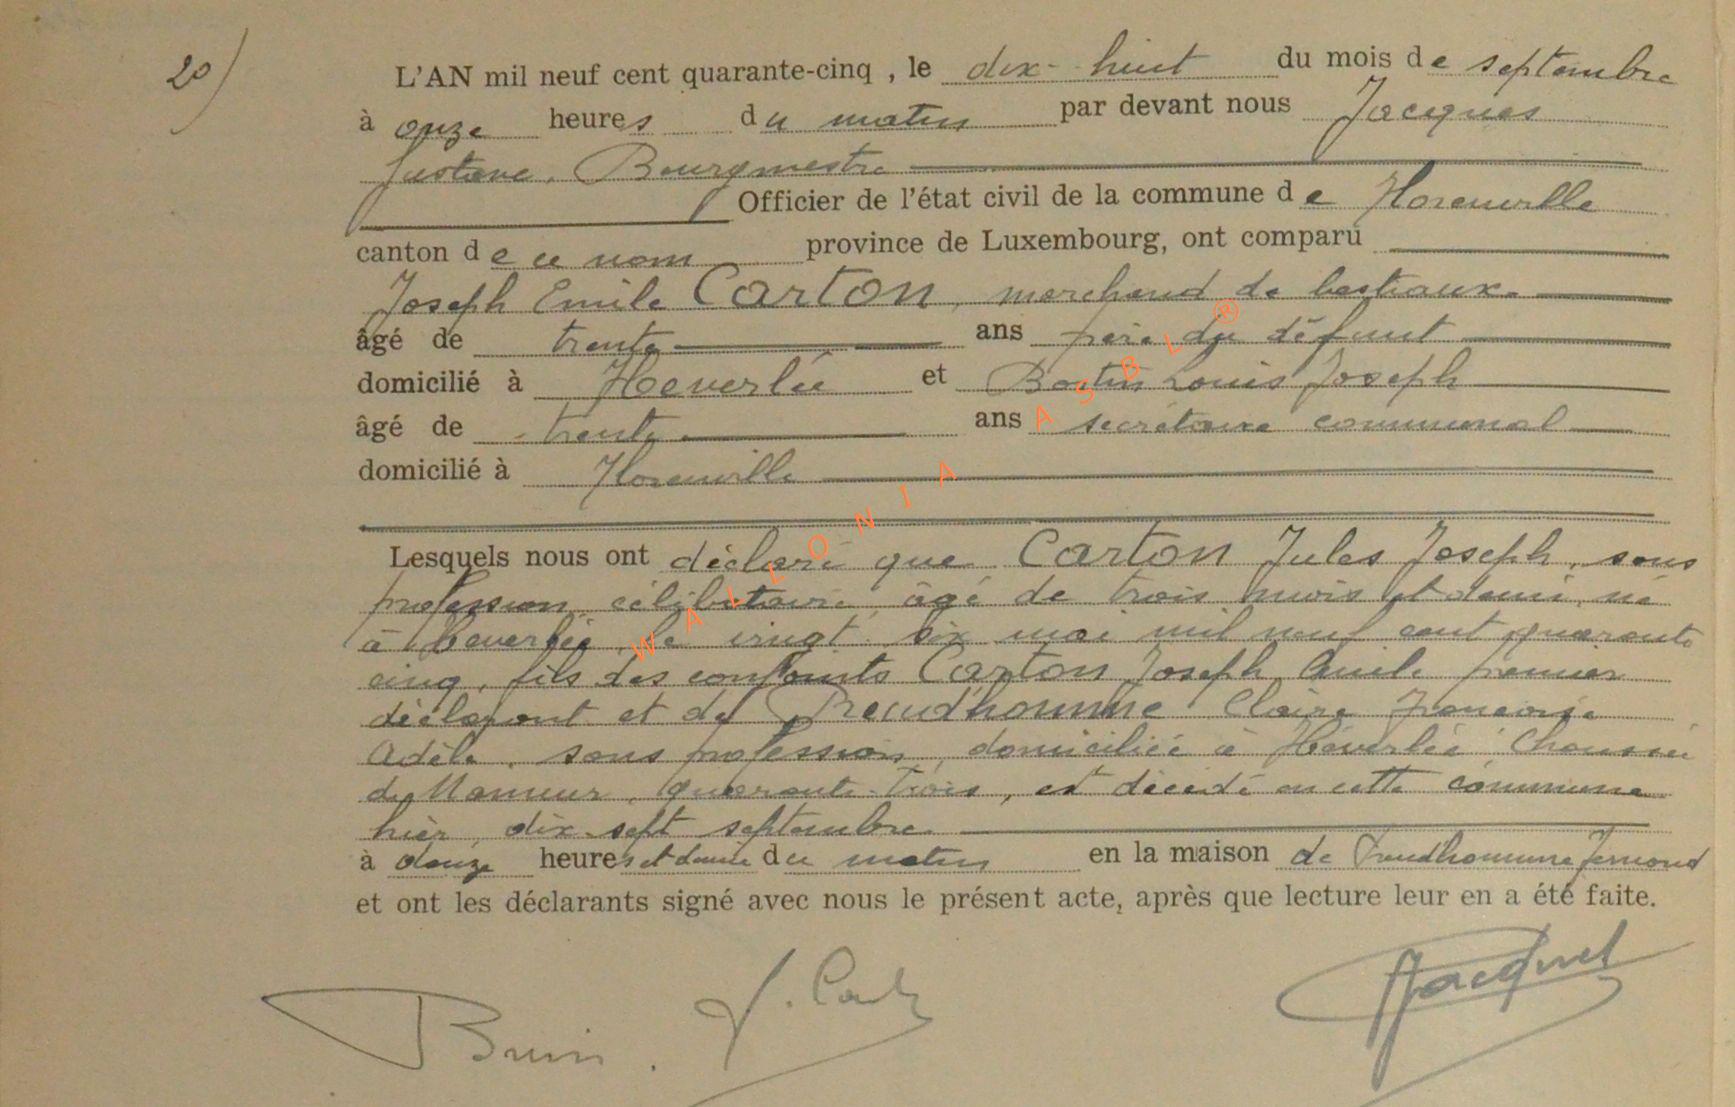 20)
L'AN mil neuf cent quarante-cinq , le dix-huit du mois de septembre
à onze heures du matin par devant nous Jacques
Gustave, Bourgmestre
Officier de l'état civil de la commune de Florenville
canton de ce nom province de Luxembourg, ont comparu
Joseph Emile Carton, marchand de bestiaux.
âgé de trente ans père du défunt
domicilié à Heverlée et Louis Joseph
âgé de trente ans secrétaire communal
domicilié à Florenville
Lesquels nous ont déclaré que Carton Jules Joseph, sans
profession, célibataire, âgé de trois mois et demi, né
à Heverlée, le vingt six mai mil neuf cent quarante
cinq, fils des conjoints Carton Joseph Emile premier
déclarant et de Preud'homme Claire Françoise
Adèle, sans profession, domiciliée à Héverlée Chaussée
de Namur, quarante-trois, est décédé en cette commune
hier, dix-sept septembre
à heures et demie du matin en la maison de
et ont les déclarants signé avec nous le présent acte, après que lecture leur en a été faite.
WALLONIA ASBL®